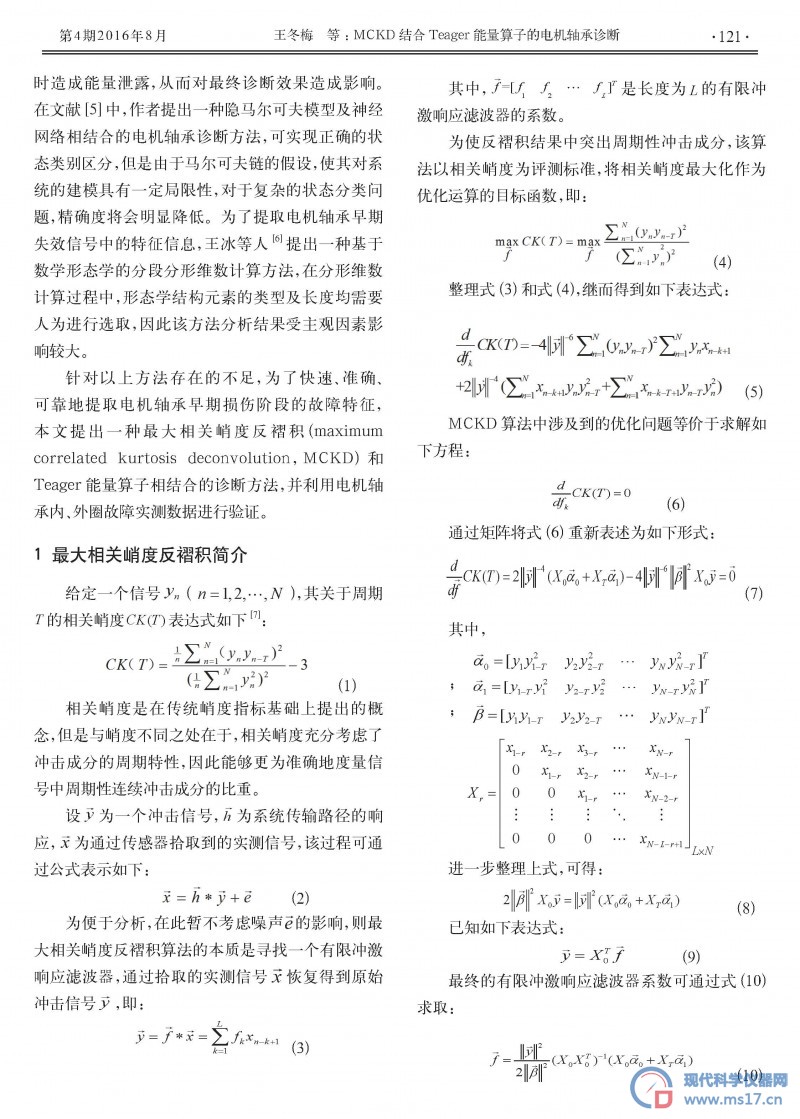 第4期2016年8月 王冬梅 等:MCKD结合Teager能量算子的电机轴承诊断 ·121·
时造成能量泄露,从而对最终诊断效果造成影响。
在文献[5]中,作者提出一种隐马尔可夫模型及神经
网络相结合的电机轴承诊断方法,可实现正确的状
态类别区分,但是由于马尔可夫链的假设,使其对系
统的建模具有一定局限性,对于复杂的状态分类问
题,精确度将会明显降低。为了提取电机轴承早期
失效信号中的特征信息,王冰等人[6]提出一种基于
数学形态学的分段分形维数计算方法,在分形维数
计算过程中,形态学结构元素的类型及长度均需要
人为进行选取,因此该方法分析结果受主观因素影
响较大。
针对以上方法存在的不足,为了快速、准确、
可靠地提取电机轴承早期损伤阶段的故障特征,
本文提出一种最大相关峭度反褶积(maximum
correlated kurtosis deconvolution, MCKD) 和
Teager能量算子相结合的诊断方法,并利用电机轴
承内、外圈故障实测数据进行验证。
1 最大相关峭度反褶积简介
给定一个信号 y_n ( n=1,2,⋯,N ),其关于周期
T的相关峭度CK(T)表达式如下[7]:
CK( T) = \frac{\frac{1}{n}\sum_{n=1}^{N}(y_n y_{n-T})^2}{(\frac{1}{n}\sum_{n=1}^{N} y_n^2)^2} − 3 (1)
相关峭度是在传统峭度指标基础上提出的概
念,但是与峭度不同之处在于,相关峭度充分考虑了
冲击成分的周期特性,因此能够更为准确地度量信
号中周期性连续冲击成分的比重。
设 \vec{y} 为一个冲击信号, \vec{h} 为系统传输路径的响
应, \vec{x} 为通过传感器拾取到的实测信号,该过程可通
过公式表示如下:
\vec{x} = \vec{h} * \vec{y} + \vec{e} (2)
为便于分析,在此暂不考虑噪声\vec{e}的影响,则最
大相关峭度反褶积算法的本质是寻找一个有限冲激
响应滤波器,通过拾取的实测信号 \vec{x} 恢复得到原始
冲击信号 \vec{y} ,即:
\vec{y} = \vec{f} * \vec{x} = \sum_{k=1}^{L} f_k x_{n-k+1} (3)
其中, \vec{f}=[f_1 f_2 ⋯ f_L]^T 是长度为 L 的有限冲
激响应滤波器的系数。
为使反褶积结果中突出周期性冲击成分,该算
法以相关峭度为评测标准,将相关峭度最大化作为
优化运算的目标函数,即:
\max_{\vec{f}} CK( T) = \max_{\vec{f}} \frac{\sum_{n=1}^{N}(y_n y_{n-T})^2}{(\sum_{n=1}^{N} y_n^2)^2} (4)
整理式(3)和式(4),继而得到如下表达式:
\frac{d}{df_k}CK(T)=−4‖\vec{y}‖^{-6} \sum_{n=1}^{N}(y_n y_{n-T})^2 \sum_{n=1}^{N} y_n x_{n-k+1}
+2‖\vec{y}‖^{-4} (\sum_{n=1}^{N} x_{n-k+1} y_n y_{n-T}^2 + \sum_{n=1}^{N} x_{n-k-T+1} y_{n-T} y_n^2) (5)
MCKD算法中涉及到的优化问题等价于求解如
下方程:
\frac{d}{df_k}CK(T) = 0 (6)
通过矩阵将式(6)重新表述为如下形式:
\frac{d}{d\vec{f}}CK(T) = 2‖\vec{y}‖^{-4} (X_0\vec{α}_0 + X_T\vec{α}_1) − 4‖\vec{y}‖^{-6} ‖\vec{β}‖^2 X_0\vec{y} = \vec{0} (7)
其中,
\vec{α}_0 = [y_1 y_{1-T}^2 y_2 y_{2-T}^2 ⋯ y_N y_{N-T}^2]^T
; \vec{α}_1 = [y_{1-T} y_1^2 y_{2-T} y_2^2 ⋯ y_{N-T} y_N^2]^T
; \vec{β} = [y_1 y_{1-T} y_2 y_{2-T} ⋯ y_N y_{N-T}]^T
x_{1-r} x_{2-r} x_{3-r} ⋯ x_{N-r}
0 x_{1-r} x_{2-r} ⋯ x_{N-1-r}
X_r = 0 0 x_{1-r} ⋯ x_{N-2-r}
⋮ ⋮ ⋮ ⋱ ⋮
0 0 0 ⋯ x_{N-L-r+1} L×N
进一步整理上式,可得:
2‖\vec{β}‖^2 X_0\vec{y} = ‖\vec{y}‖^2 (X_0\vec{α}_0 + X_T\vec{α}_1) (8)
已知如下表达式:
\vec{y} = X_0^T \vec{f} (9)
最终的有限冲激响应滤波器系数可通过式(10)
求取:
\vec{f} = \frac{‖\vec{y}‖^2}{2‖\vec{β}‖^2} (X_0 X_0^T)^{-1} (X_0\vec{α}_0 + X_T\vec{α}_1) (10)
现代科学仪器网
www.ms17.cn